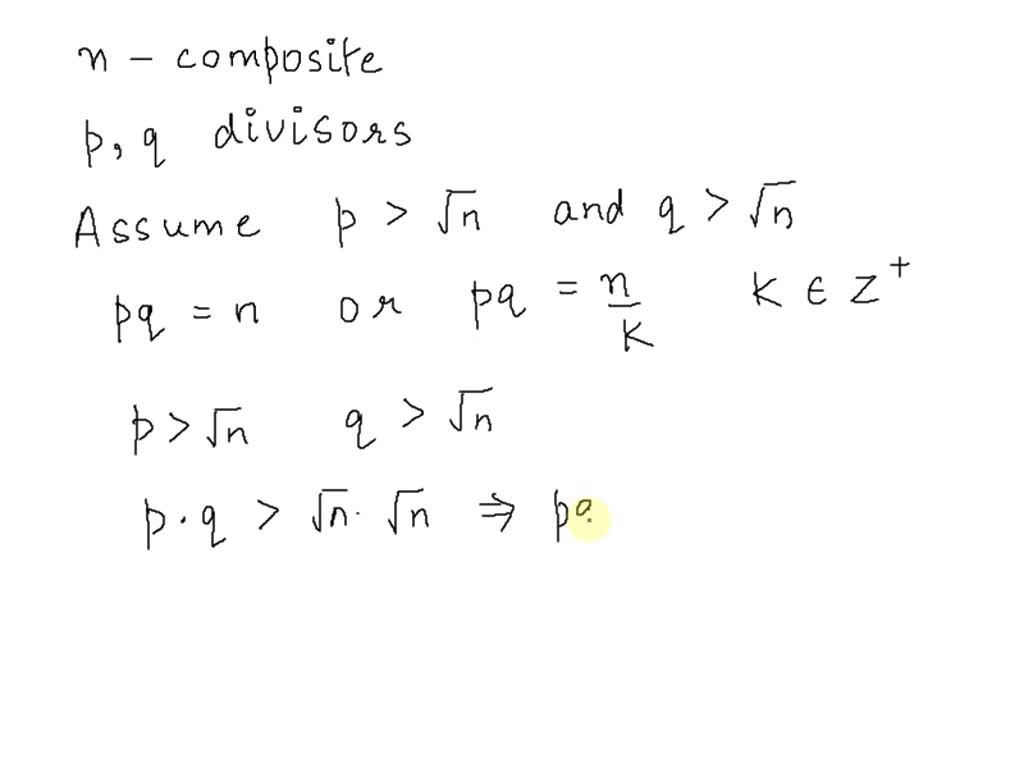 n - composite
p, q divisors
Assume p > √n and q > √n
pq = n or pq = n/K K ∈ Z⁺
p > √n q > √n
p · q > √n · √n ⇒ p